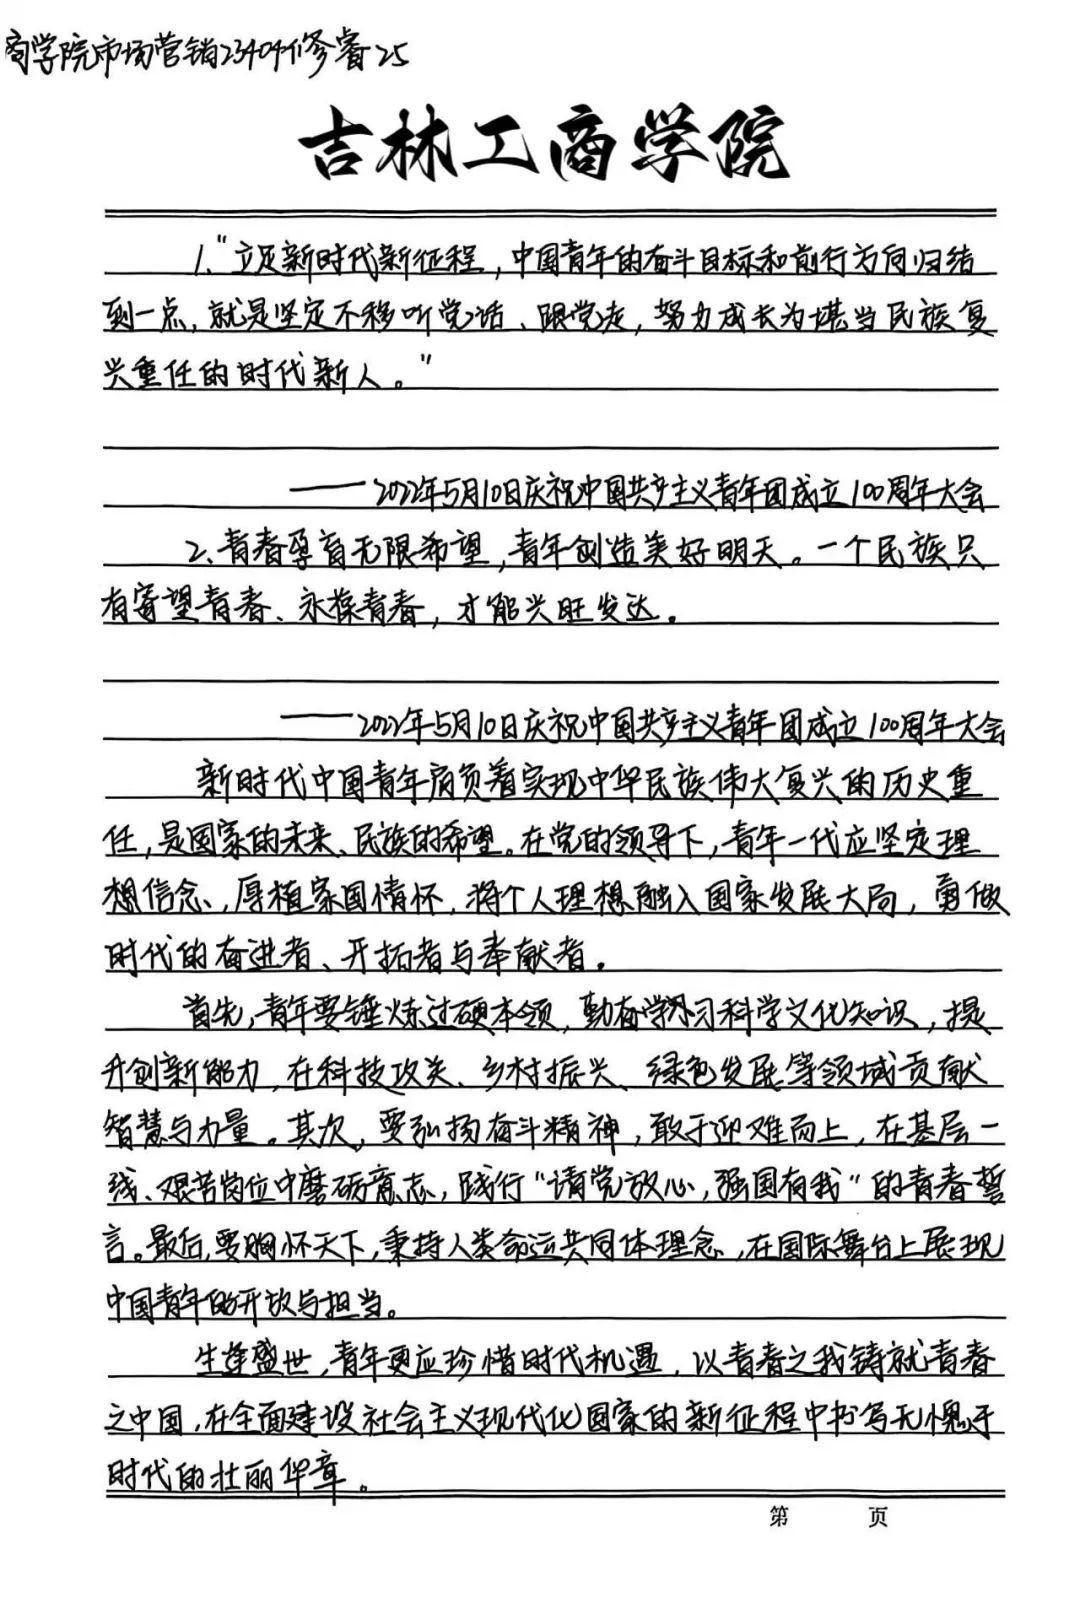 商学院市场营销23404修睿25
吉林工商学院
1."立足新时代新征程，中国青年的奋斗目标和前行方向归结
到一点，就是坚定不移听党话、跟党走，努力成长为堪当民族复
兴重任的时代新人。"
——2022年5月10日庆祝中国共产主义青年团成立100周年大会
2.青春孕育无限希望，青年创造美好明天。一个民族只
有寄望青春、永葆青春，才能兴旺发达。
——2022年5月10日庆祝中国共产主义青年团成立100周年大会
新时代中国青年肩负着实现中华民族伟大复兴的历史重
任，是国家的未来、民族的希望。在党的领导下，青年一代应坚定理
想信念，厚植家国情怀，将个人理想融入国家发展大局，勇做
时代的奋进者、开拓者与奉献者。
首先，青年要锤炼过硬本领，勤奋学习科学文化知识，提
升创新能力，在科技攻关、乡村振兴、绿色发展等领域贡献
智慧与力量。其次，要弘扬奋斗精神，敢于迎难而上，在基层一
线、艰苦岗位中磨砺意志，践行"请党放心，强国有我"的青春誓
言。最后，要胸怀天下，秉持人类命运共同体理念，在国际舞台上展现
中国青年的开放与担当。
生逢盛世，青年更应珍惜时代机遇，以青春之我铸就青春
之中国，在全面建设社会主义现代化国家的新征程中书写无愧于
时代的壮丽华章。
第 页